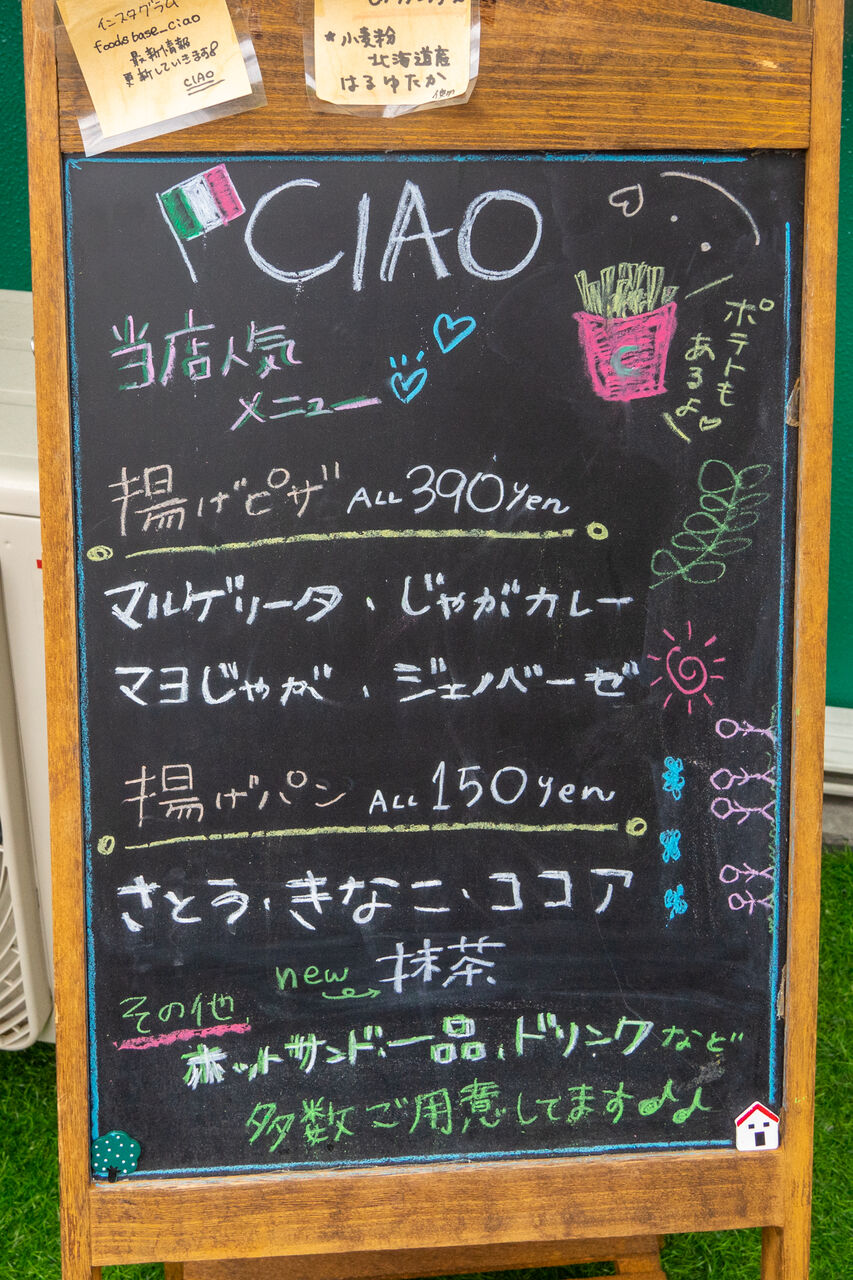 インスタグラム
foodsbase_ciao
最新情報
更新していきます
CIAO
*小麦粉
北海道産
はるゆたか
CIAO
ポテトも
あるよ
C
当店人気
メニュー
揚げピザ ALL 390yen
マルゲリータ、じゃがカレー
マヨじゃが、ジェノベーゼ
揚げパン ALL 150yen
さとう、きなこ、ココア
new 抹茶
その他
ホットサンド、一品、ドリンクなど
多数ご用意してます♪♪